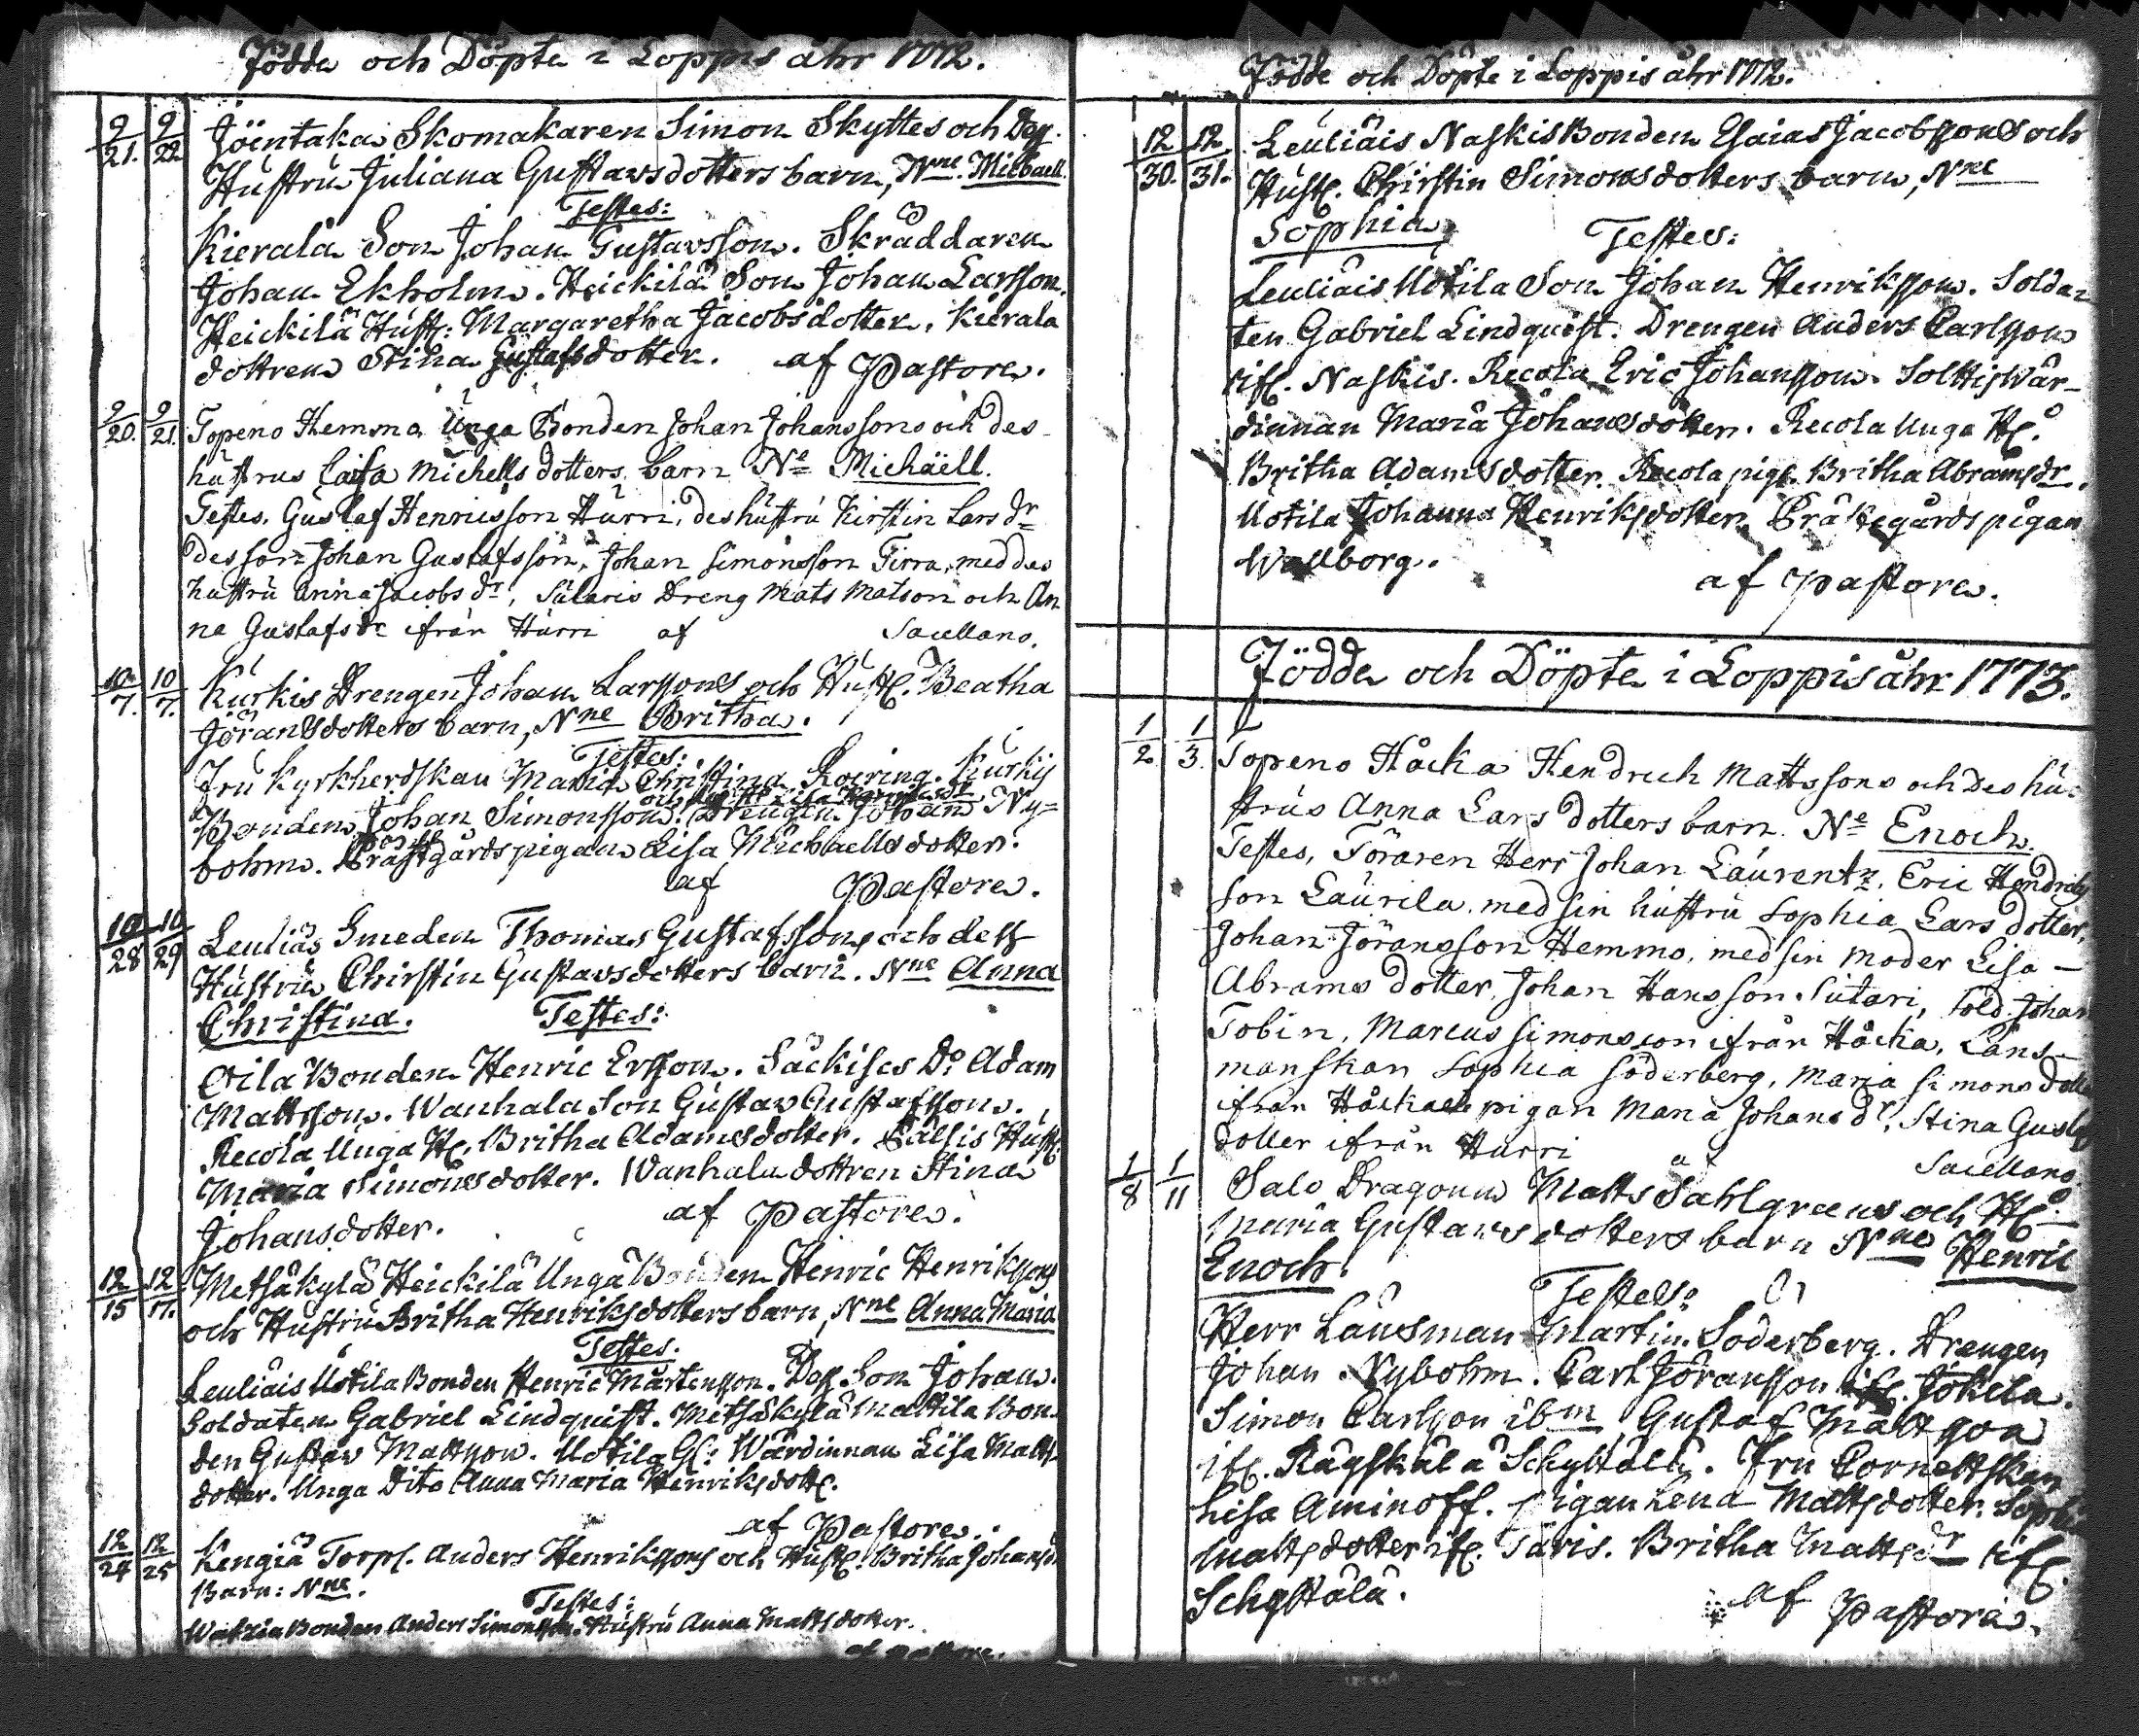 Födde och Döpte i Loppis åhr 1772.
9/21. 9/22 Jöentaka Skomakaren Simon Skyttes och Dess
Hustru Juliana Gustavsdotters barn, Nne. Michaell.
Testes:
Kierala Son Johan Gustavsson. Skräddaren
Johan Ekholm. Heickilä Son Johan Larsson.
Heickilä Hustr: Margaretha Jacobsdotter, Kierala
dottren Stina Gustafsdotter. af Pastore.
9/20. 9/21. Topeno Hemma Unga Bonden Johan Johanssons och des
hustrus Caisa Michells dotters barn Ne Michäell.
Testes, Gustaf Henricsson Hurri, des hustru Kirstin Lars dr
des son Johan Gustafsson, Johan Simonsson Tirra, med des
hustru Anna Jacobs dr, Sälaris Dreng Mats Matson och An
na Gustafs dr ifrån Hurri af Sacellano.
10/7. 10/7. Kurkis Drengen Johan Larssons och Hustr. Beatha
Jöransdotters barn, Nne Britha.
Testes:
Fru Kyrkherdskan Maria Christina Roering. Kurkis
Bonden Johan Simonsson. Drengen Johan Ny=
bohm. Prästgårds pigan Lisa Michaellsdotter.
af Pastore.
10/28 10/29 Leuliäs Smeden Thomas Gustafssons och dess
Hustru Christin Gustavsdotters barn. Nne Anna
Christina. Testes:
Oila Bonden Henric Ersson. Säckises Do Adam
Mattsson. Wanhala Son Gustav Gustafsson.
Recola Unga H. Britha Adamsdotter. Hustr.
Maria Simonsdotter. Wanhala dottren Stina
Johansdotter. af Pastore.
12/15 12/17. Metsäkylä Heickilä Unga Bonden Henric Henrikssons
och Hustru Britha Henriksdotters barn, Nne Anna Maria
Testes.
Leuliäis Uotila Bonden Henric Mårtensson. Dess Son Johan.
Soldaten Gabriel Lindquist. Metsäkylä Mattila Bon
den Gustav Mattsson. Uotila Gl: Wärdinnan Lisa Matts
dotter. Unga Dito Anna Maria Henriksdott.
af Pastore.
12/24 12/25 Kengiä Torp. Anders Henrikssons och Hustr. Britha Johansd.
Barn: Nne.
Testes:
Bonden Anders Simonsson. Hustru Anna Mattsdotter.
af Pastore.
Födde och Döpte i Loppis åhr 1772.
12/30. 12/31. Leuliäis Naskis Bonden Esaias Jacobssons och
Hustr. Christin Simonsdotters barn, Nne
Sophia. Testes:
Leuliäis Uotila Son Johan Henriksson. Solda=
ten Gabriel Lindquist. Drengen Anders Carlsson
ifr. Naskis. Recola Eric Johansson. Solttis Wär-
dinnan Maria Johansdotter. Recola Unga H.
Britha Adamsdotter. Recola pig. Britha Abramsdr.
Uotila Johanna Henriksdotter. Prästegårds pigan
Wallborg.
af Pastore.
Födde och Döpte i Loppis åhr 1773.
1/2 1/3. Topeno Håcka Hendrich Mattssons och des hu=
strus Anna Lars dotters barn. Ne Enoch.
Testes, Föraren Herr Johan Laurentz. Eric Hendrichs
son Laurila. med sin hustru Sophia Lars dotter,
Johan Jöransson Hemmo, med sin moder Lisa
Abrams dotter, Johan Hansson Sutari, Sold. Johan
Tobin, Marcus Simonsson ifrån Håcka, Läns-
manskan Sophia Söderberg, Maria Simons dotter
ifrån Håcka pigan Maria Johans dr, Stina Gustaf
dotter ifrån Hurri af Sacellano.
1/8 1/11 Salo Dragoun Matts Sahlgreens och H.
Maria Gustavsdotters barn Nne Henric
Enoch. Testes:
Herr Länsman Martin Söderberg. Drengen
Johan Nybohm. Carl Jöransson ifr. Jokela.
Simon Carlsson ibm Gustaf Mattsson
ifr. Räyskälä Schyttälä. Fru Cornettskan
Lisa Aminoff. pigan Lena Mattsdotter. Sophia
Mattsdotter ifr. Taris. Britha Matts dr ifr.
Schyttälä.
af Pastore.